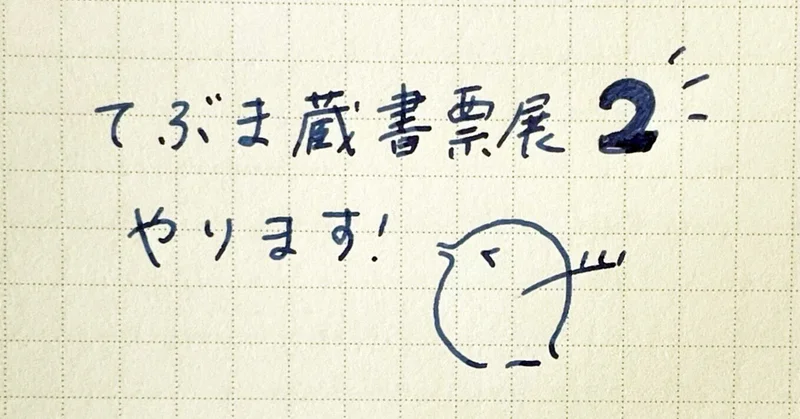 てぶま蔵書票展2
やります!